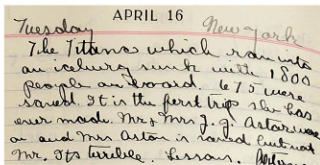 APRIL 16
Tuesday New York
The Titanic which ran into
an iceburg sunk with 1800
people on board. 675 were
saved. It is the first trip she has
ever made. Mr & Mrs J. J. Astor were
on and Mrs Astor is saved but not
Mr. Its terrible. Lesson.